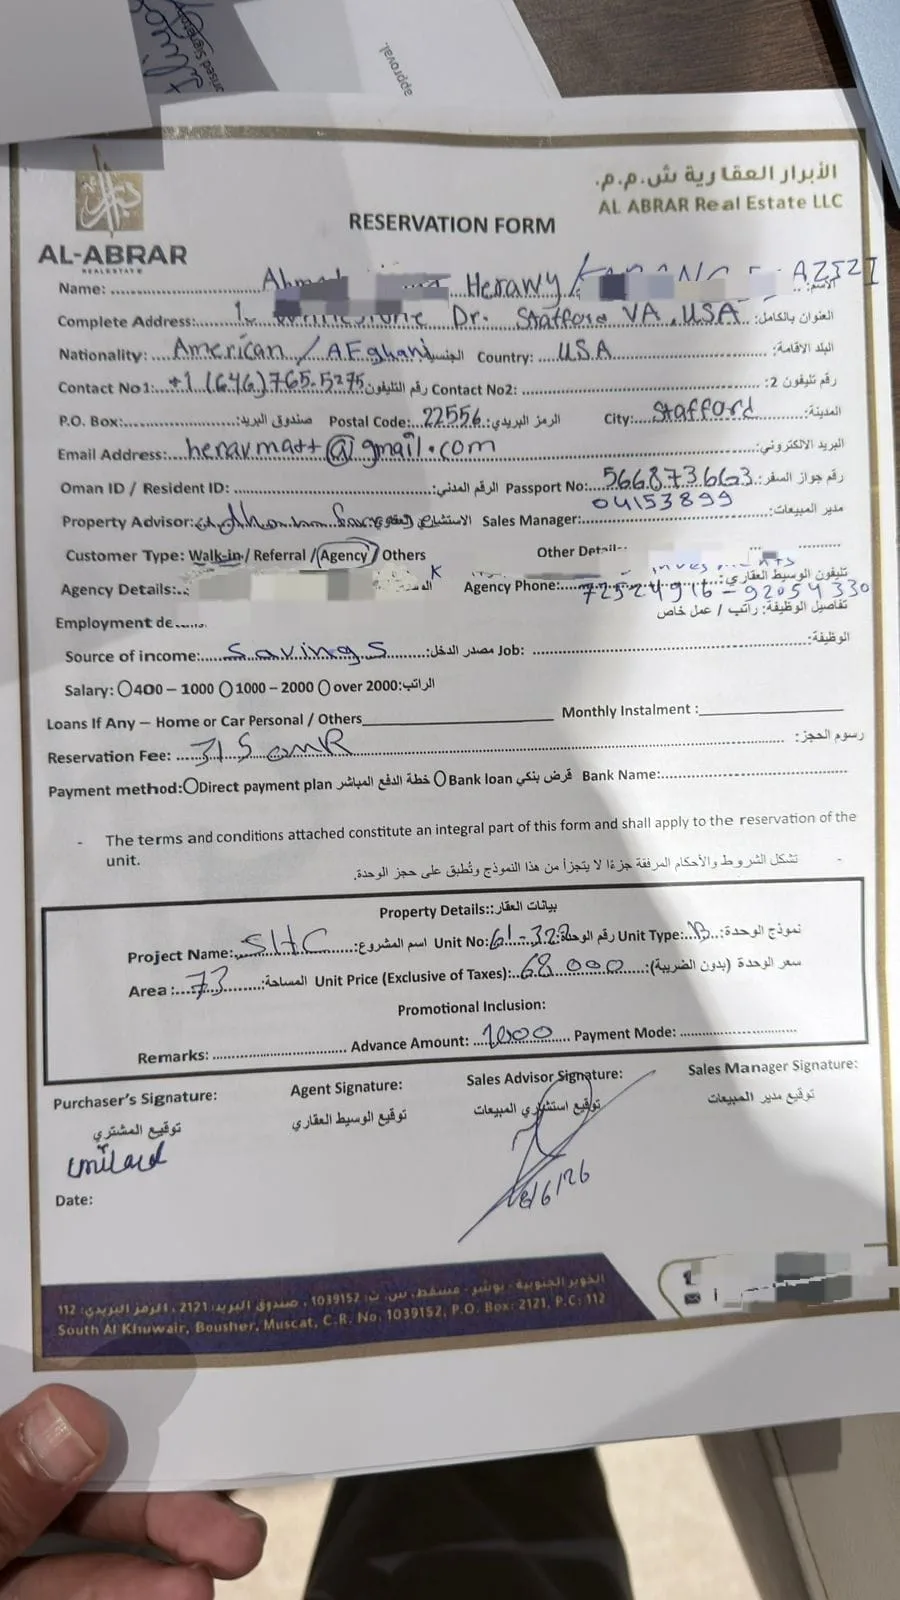 approval.
الأبرار العقارية ش.م.م.
AL ABRAR Real Estate LLC
AL-ABRAR
REAL ESTATE
RESERVATION FORM
Name: Herawy / AZIZI الاسم:
Complete Address: Dr. Stafford VA, USA العنوان بالكامل:
Nationality: American / AFghani الجنسية Country: USA البلد الاقامة:
Contact No1: +1 (646) 765-5275 رقم التليفون Contact No2: رقم تليفون 2:
P.O. Box: صندوق البريد: Postal Code: 22556 الرمز البريدي: City: Stafford المدينة:
Email Address: heravmatt@gmail.com البريد الالكتروني:
Oman ID / Resident ID: الرقم المدني: Passport No: 566873663 رقم جواز السفر:
04153899
Property Advisor: Sales Manager: مدير المبيعات:
Customer Type: Walk-in / Referral / Agency / Others Other Detail
Agency Details: K Agency Phone: 72524916 - 92054330 تليفون الوسيط العقاري:
Employment de تفاصيل الوظيفة: راتب / عمل خاص
Source of income: Savings مصدر الدخل: Job: الوظيفة:
Salary: 400 – 1000 1000 – 2000 over 2000 الراتب:
Loans If Any – Home or Car Personal / Others Monthly Instalment :
Reservation Fee: 315 OMR رسوم الحجز:
Payment method: Direct payment plan خطة الدفع المباشر Bank loan قرض بنكي Bank Name:
- The terms and conditions attached constitute an integral part of this form and shall apply to the reservation of the
unit.
- تشكل الشروط والأحكام المرفقة جزءًا لا يتجزأ من هذا النموذج وتُطبق على حجز الوحدة.
Property Details: بيانات العقار:
Project Name: SHC اسم المشروع: Unit No: رقم الوحدة: Unit Type: B نموذج الوحدة:
Area : 73 المساحة: Unit Price (Exclusive of Taxes): 68 000 سعر الوحدة (بدون الضريبة):
Promotional Inclusion:
Remarks: Advance Amount: 1000 Payment Mode:
Purchaser's Signature: Agent Signature: Sales Advisor Signature: Sales Manager Signature:
توقيع المشتري توقيع الوسيط العقاري توقيع استشاري المبيعات توقيع مدير المبيعات
Date:
الخوير الجنوبية - بوشر - مسقط، س. ت: 1039152 ، صندوق البريد: 2121 ، الرمز البريدي: 112
South Al Khuwair, Bousher, Muscat, C.R. No. 1039152, P.O. Box: 2121, P.C: 112